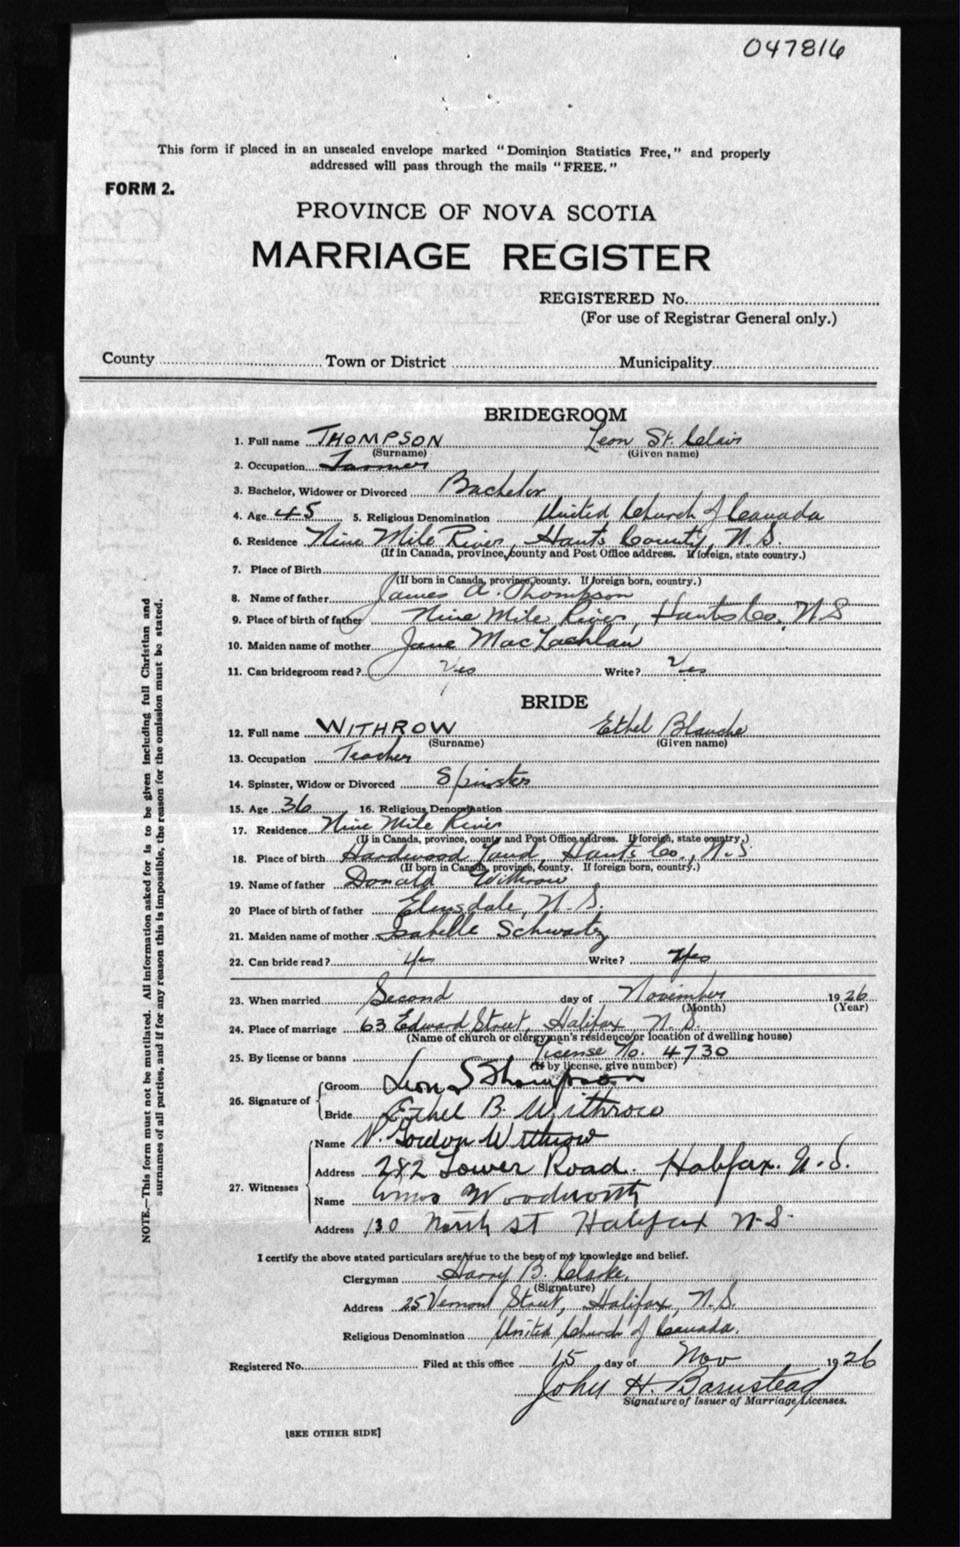 047816
This form if placed in an unsealed envelope marked "Dominion Statistics Free," and properly
addressed will pass through the mails "FREE."
FORM 2.
PROVINCE OF NOVA SCOTIA
MARRIAGE REGISTER
REGISTERED No.
(For use of Registrar General only.)
County Town or District Municipality
BRIDEGROOM
1. Full name THOMPSON Leon St. Clair
(Surname) (Given name)
2. Occupation Farmer
3. Bachelor, Widower or Divorced Bachelor
4. Age 45 5. Religious Denomination United Church of Canada
6. Residence Nine Mile River, Hants County, N.S.
(If in Canada, province, county and Post Office address. If foreign, state country.)
7. Place of Birth
(If born in Canada, province, county. If foreign born, country.)
8. Name of father James A. Thompson
9. Place of birth of father Nine Mile River, Hants Co. N S
10. Maiden name of mother Jane MacLachlan
11. Can bridegroom read? Yes Write? Yes
BRIDE
12. Full name WITHROW Ethel Blanche
(Surname) (Given name)
13. Occupation Teacher
14. Spinster, Widow or Divorced Spinster
15. Age 36 16. Religious Denomination
17. Residence Nine Mile River
(If in Canada, province, county and Post Office address. If foreign, state country.)
18. Place of birth Hardwood Land, Hants Co., N.S
(If born in Canada, province, county. If foreign born, country.)
19. Name of father Donald Withrow
20 Place of birth of father Elmsdale, N.S.
21. Maiden name of mother Isabelle Schwartz
22. Can bride read? Yes Write? Yes
23. When married Second day of November 1926
(Month) (Year)
24. Place of marriage 63 Edward Street, Halifax, N.S.
(Name of church or clergyman's residence or location of dwelling house)
25. By license or banns License No. 4730
(If by license, give number)
26. Signature of Groom Leon S Thompson
Bride Ethel B. Withrow
27. Witnesses Name Gordon Withrow
Address 282 Tower Road. Halifax. N.S.
Name Amos Woodworth
Address 130 North St Halifax N.S.
I certify the above stated particulars are true to the best of my knowledge and belief.
Clergyman Harry B. Clarke.
(Signature)
Address 25 Vernon Street, Halifax, N.S.
Religious Denomination United Church of Canada.
Registered No. Filed at this office 15 day of Nov 1926
John H. Barnstead
Signature of Issuer of Marriage Licenses.
[SEE OTHER SIDE]
NOTE.—This form must not be mutilated. All information asked for is to be given including full Christian and
surnames of all parties, and if for any reason this is impossible, the reason for the omission must be stated.